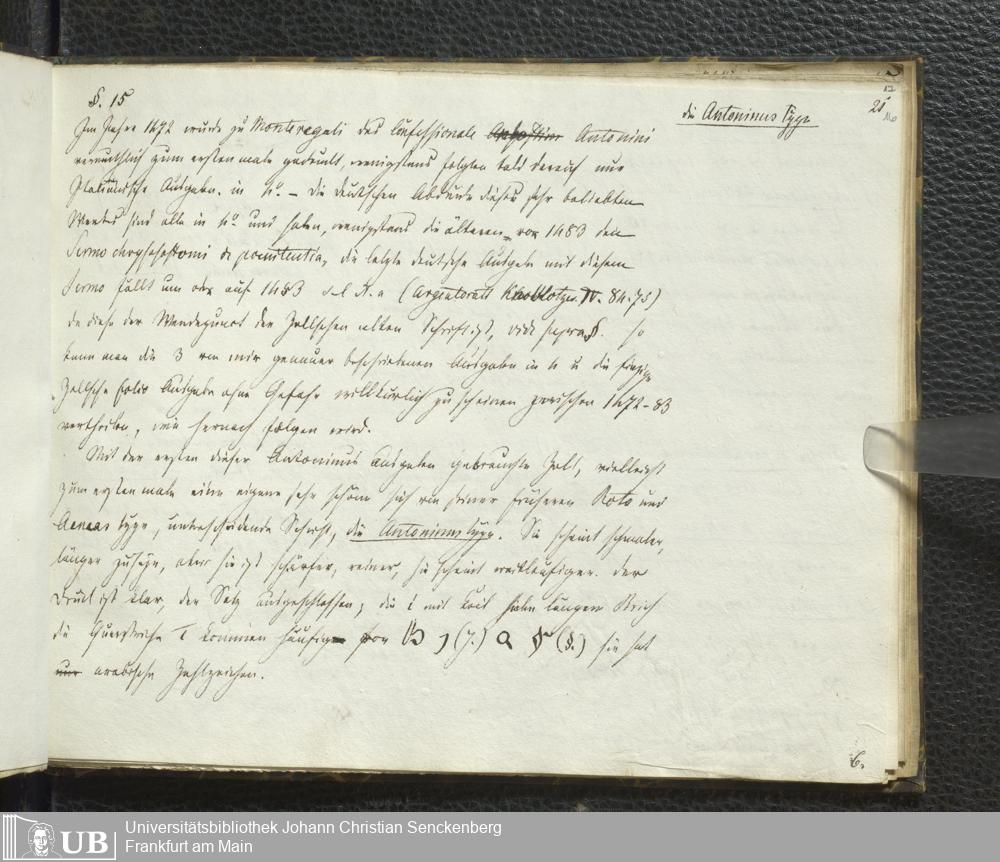 §. 15
die Antoninus Type
21
Im Jahre 1472 wurde zu Monteregali das Confessionale Antonini
vermuthlich zum ersten male gedruckt, wenigstens folgten bald darauf nur
Italiänische Ausgaben. in 4º. – die deutschen Abdrücke dieses sehr beliebten
Werkes sind alle in 4º und haben, wenigstens die älteren vor 1483 den
Sermo chrysostomi de poenitentia, die letzte deutsche Ausgabe mit diesem
Sermo fällt um oder auf 1483 (Argentorati Knoblotzer. IV. 84.75)
da diese der Wendepunct der Zellschen alten Schrift ist, vide supra §. so
kann man die 3 von mir genauer beschriebenen Ausgaben in 4 u die einzige
Zellsche folio Ausgabe ohne Gefahr willkürlich zu scheinen zwischen 1472-83
vertheilen, wie hernach folgen wird.
Mit der ersten dieser Antoninus Ausgaben gebrauchte Zell, vielleicht
zum ersten male eine eigene sehr schöne sich von seiner früheren Koto und
Aeneas type, unterscheidende Schrift, die Antoninus type. Sie scheint schmaler,
länger zu seyn, aber sie ist schärfer, reiner, sie scheint weitläufiger. der
Druck ist klar, der Satz ausgeschlossen; die i mit halb langem Strich
die Querstriche kommen häufig vor (§.) sie hat
nur arabische Zahlzeichen.
6.
Universitätsbibliothek Johann Christian Senckenberg
UB Frankfurt am Main